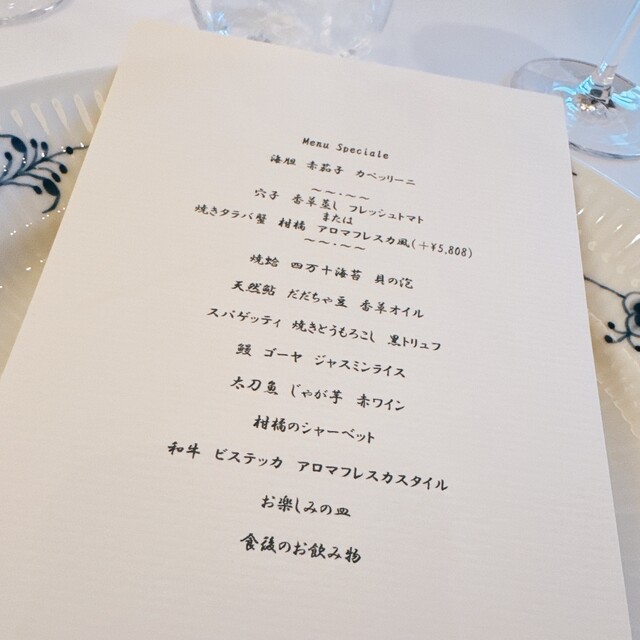 Menu Speciale
海胆 赤茄子 カペッリーニ
~~・~~
穴子 香草蒸し フレッシュトマト
または
焼きタラバ蟹 柑橘 アロマフレスカ風(+¥5,808)
~~・~~
焼蛤 四万十海苔 貝の泡
天然鮎 だだちゃ豆 香草オイル
スパゲッティ 焼きとうもろこし 黒トリュフ
鰻 ゴーヤ ジャスミンライス
太刀魚 じゃが芋 赤ワイン
柑橘のシャーベット
和牛 ビステッカ アロマフレスカスタイル
お楽しみの皿
食後のお飲み物